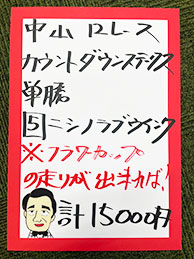 中山 12レース
カウントダウンステークス
単勝
5 ニシノラブウインク
※フラワーカップ
の走りが出来れば!
計15000円